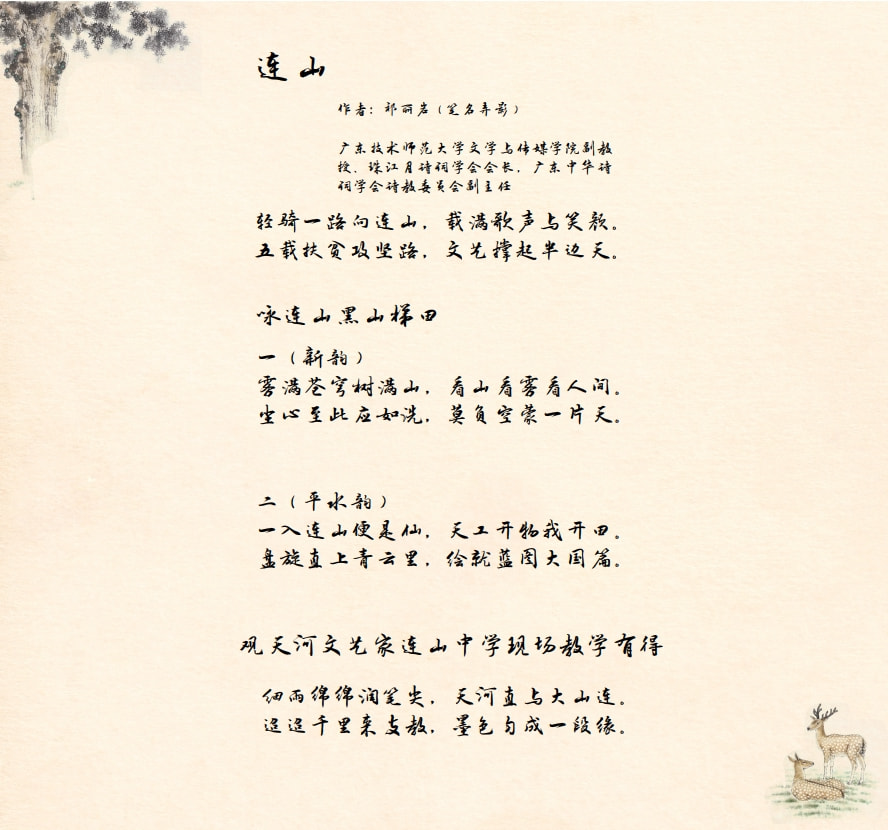 连山
作者：祁丽岩（笔名弄影）
广东技术师范大学文学与传媒学院副教
授、珠江月诗词学会会长，广东中华诗
词学会诗教委员会副主任
轻骑一路向连山，载满歌声与笑颜。
五载扶贫攻坚路，文艺撑起半边天。
咏连山黑山梯田
一（新韵）
雾满苍穹树满山，看山看雾看人间。
尘心至此应如洗，莫负空蒙一片天。
二（平水韵）
一入连山便是仙，天工开物我开田。
盘旋直上青云里，绘就蓝图大国篇。
观天河文艺家连山中学现场教学有得
细雨绵绵润笔尖，天河直与大山连。
迢迢千里来支教，墨色匀成一段缘。